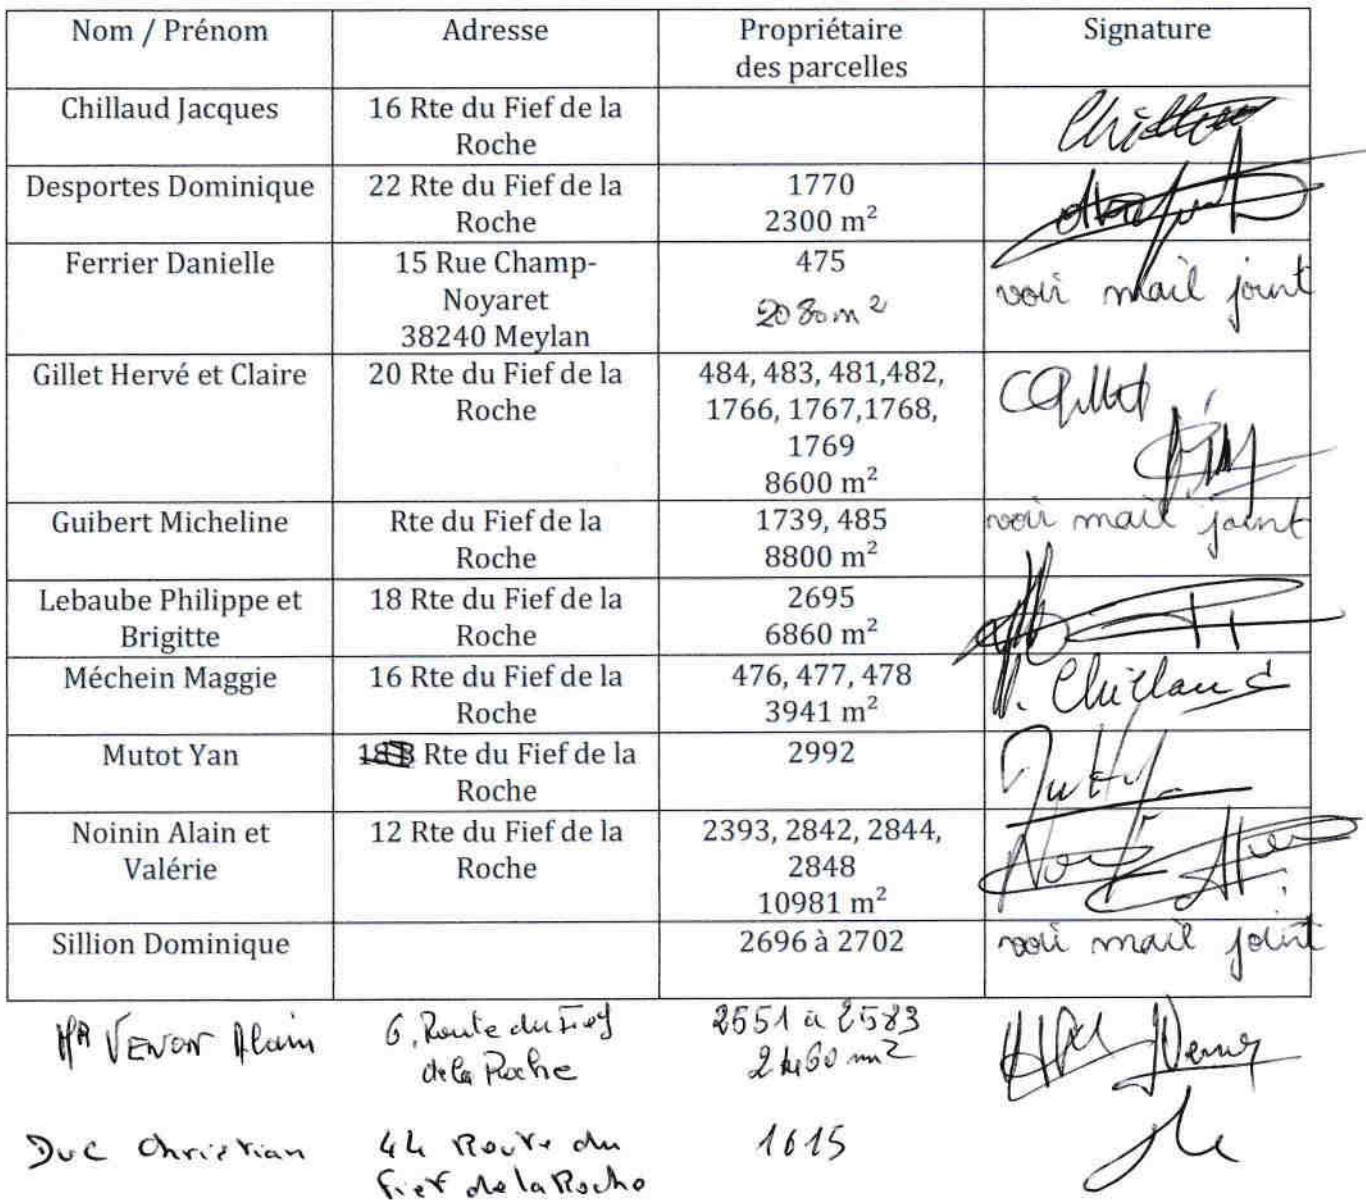 Nom / Prénom
Adresse
Propriétaire
des parcelles
Signature
Chillaud Jacques
16 Rte du Fief de la
Roche
Desportes Dominique
22 Rte du Fief de la
Roche
1770
2300 m²
Ferrier Danielle
15 Rue Champ-
Noyaret
38240 Meylan
475
2080 m²
voir mail joint
Gillet Hervé et Claire
20 Rte du Fief de la
Roche
484, 483, 481,482,
1766, 1767,1768,
1769
8600 m²
CGillet
Guibert Micheline
Rte du Fief de la
Roche
1739, 485
8800 m²
voir mail joint
Lebaube Philippe et
Brigitte
18 Rte du Fief de la
Roche
2695
6860 m²
Méchein Maggie
16 Rte du Fief de la
Roche
476, 477, 478
3941 m²
Chillaud
Mutot Yan
Rte du Fief de la
Roche
2992
Noinin Alain et
Valérie
12 Rte du Fief de la
Roche
2393, 2842, 2844,
2848
10981 m²
Sillion Dominique
2696 à 2702
voir mail joint
Alain
6, Route du Fief
de la Roche
2551 à 2583
Duc Christian
44 Route du
Fief de la Roche
1615